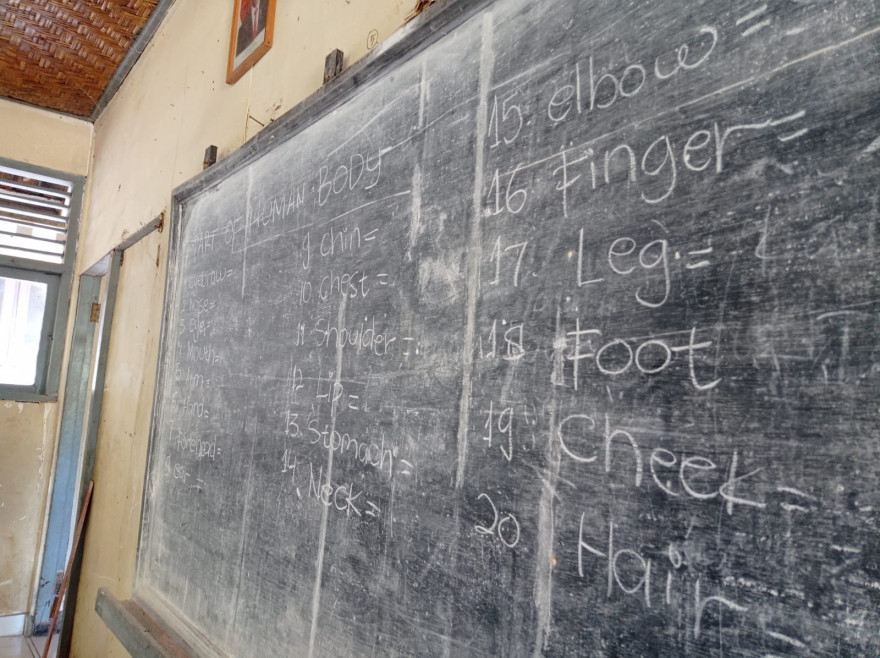 PART OF HUMAN BODY
1. eyebrow=
2. Nose=
3. Eye=
4. Mouth=
5. Arm=
6. Hand=
7. Forehead=
8. ear =
9 chin=
10. chest=
11 Shoulder=
12 Lip=
13. Stomach=
14. Neck=
15. elbow=
16 Finger=
17. Leg=
18 Foot
19. Cheek=
20 Hair